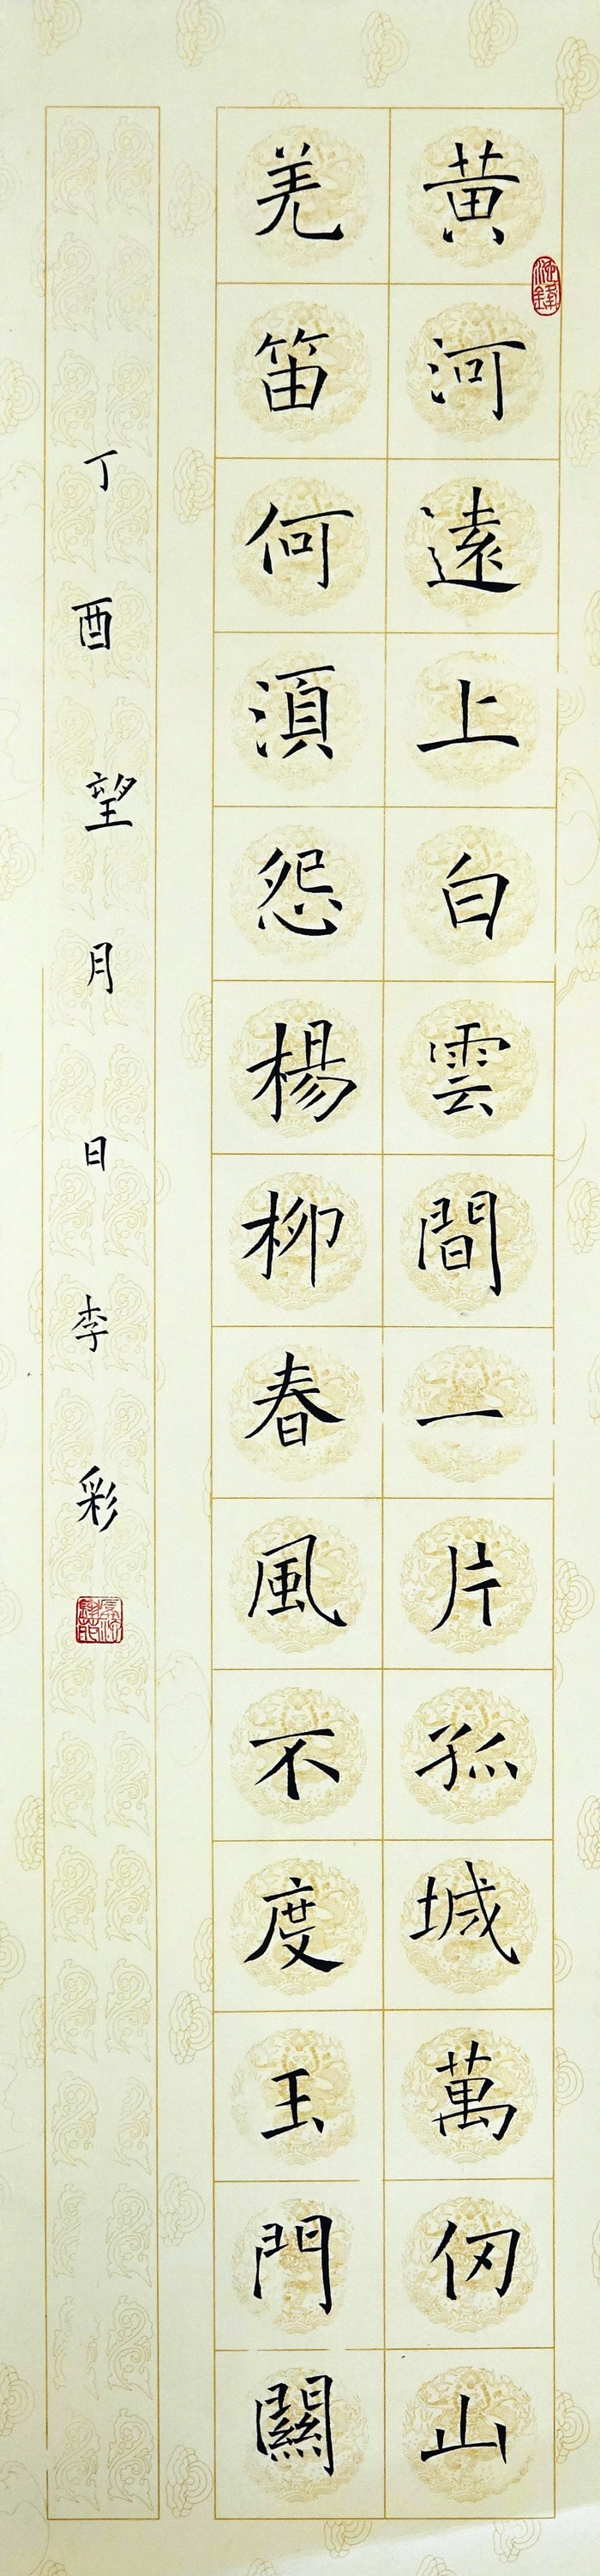 黄河遠上白雲間一片孤城萬仞山
羌笛何湏怨楊柳春風不度玉門關
丁酉望月日李彩